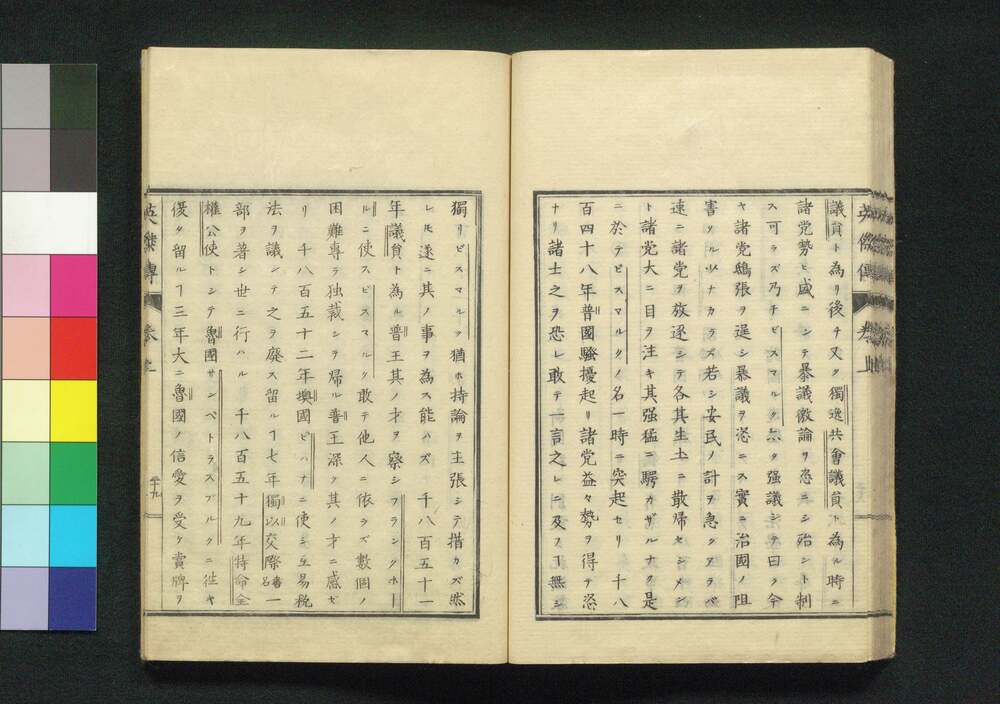 議負ト為リ後チ又タ獨逸共會議負ト為ル時ニ
諸党勢ヒ盛ニシテ暴議徴論ヲ恣ニシ殆ント制
ス可ラズ乃チビスマルク亦タ强議シテ曰ク今
ヤ諸党鴟張ヲ逞シ暴議ヲ恣ニス實ニ治國ノ阻
害タル少ナカラズ若シ安民ノ計ヲ急クアラバ
速ニ諸党ヲ放逐シテ各其生土ニ散帰セシメン
ト諸党大ニ目ヲ注キ其强猛ニ驚カザルナク是
ニ於テビスマルクノ名一時ニ突起セリ 千八
百四十八年普國騒擾起リ諸党益々勢ヲ得テ恣
ナリ諸士之ヲ恐レ敢テ一言之レニ及フヿ無シ
獨リビスマルク猶ホ持論ヲ主張シテ措カズ然
レ𪜈遂ニ其ノ事ヲ為ス能ハズ 千八百五十一
年議負ト為ル普王其ノ才ヲ察シフランクホー
ルニ使スビスマルク敢テ他人ニ依ラズ数個ノ
困難専ラ独裁シテ帰ル普王深ク其ノ才ニ感セ
リ 千八百五十二年墺國ビハナニ使シ互易税
法ヲ議シテ之ヲ廢ス留ルヿ七年獨以交際書名一
部ヲ著シ世ニ行ハル 千八百五十九年特命全
権公使トシテ魯國サンペトラスブルクニ往ヤ
優タ留ルヿ三年大ニ魯國ノ信愛ヲ受ケ賞牌ヲ
英傑傳 巻之 三十九